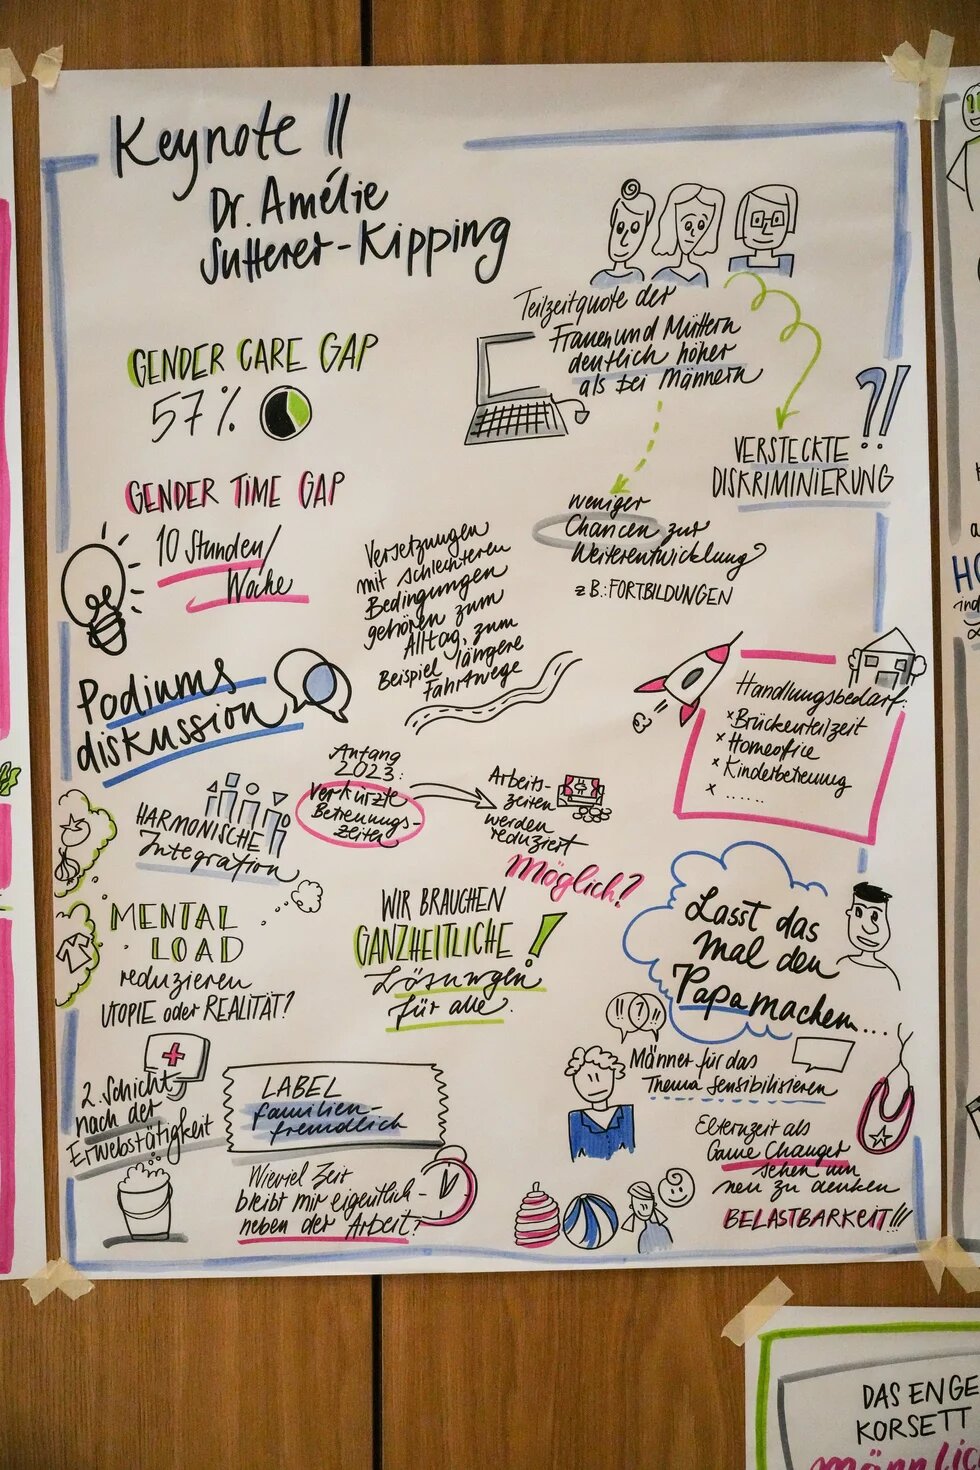 Keynote II
Dr. Amélie
Sutterer-Kipping
GENDER CARE GAP
57%
GENDER TIME GAP
10 Stunden/
Woche
Teilzeitquote der
Frauen und Müttern
deutlich höher
als bei Männern
?!
VERSTECKTE
DISKRIMINIERUNG
weniger
Chancen zur
Weiterentwicklung?
z.B.: FORTBILDUNGEN
Versetzungen
mit schlechteren
Bedingungen
gehören zum
Alltag, zum
Beispiel längere
Fahrtwege
Podiums
diskussion
Handlungsbedarf:
x Brückenteilzeit
x Homeoffice
x Kinderbetreuung
x ......
HARMONISCHE
Integration
Anfang
2023:
verkürzte
Betreuungs-
zeiten
Arbeits-
zeiten
werden
reduziert
Möglich?
MENTAL
LOAD
reduzieren
UTOPIE oder REALITÄT?
WIR BRAUCHEN
GANZHEITLICHE!
Lösungen
für alle.
Lasst das
mal den
Papa machen...
2. Schicht
nach der
Erwebstätigkeit
LABEL
familien-
freundlich
Wieviel Zeit
bleibt mir eigentlich-
neben der Arbeit?
!! ?!
Männer für das
Thema sensibilisieren
Elternzeit als
Game Changer
sehen um
neu zu denken
BELASTBARKEIT!!!
DAS ENGE
KORSETT
männlic